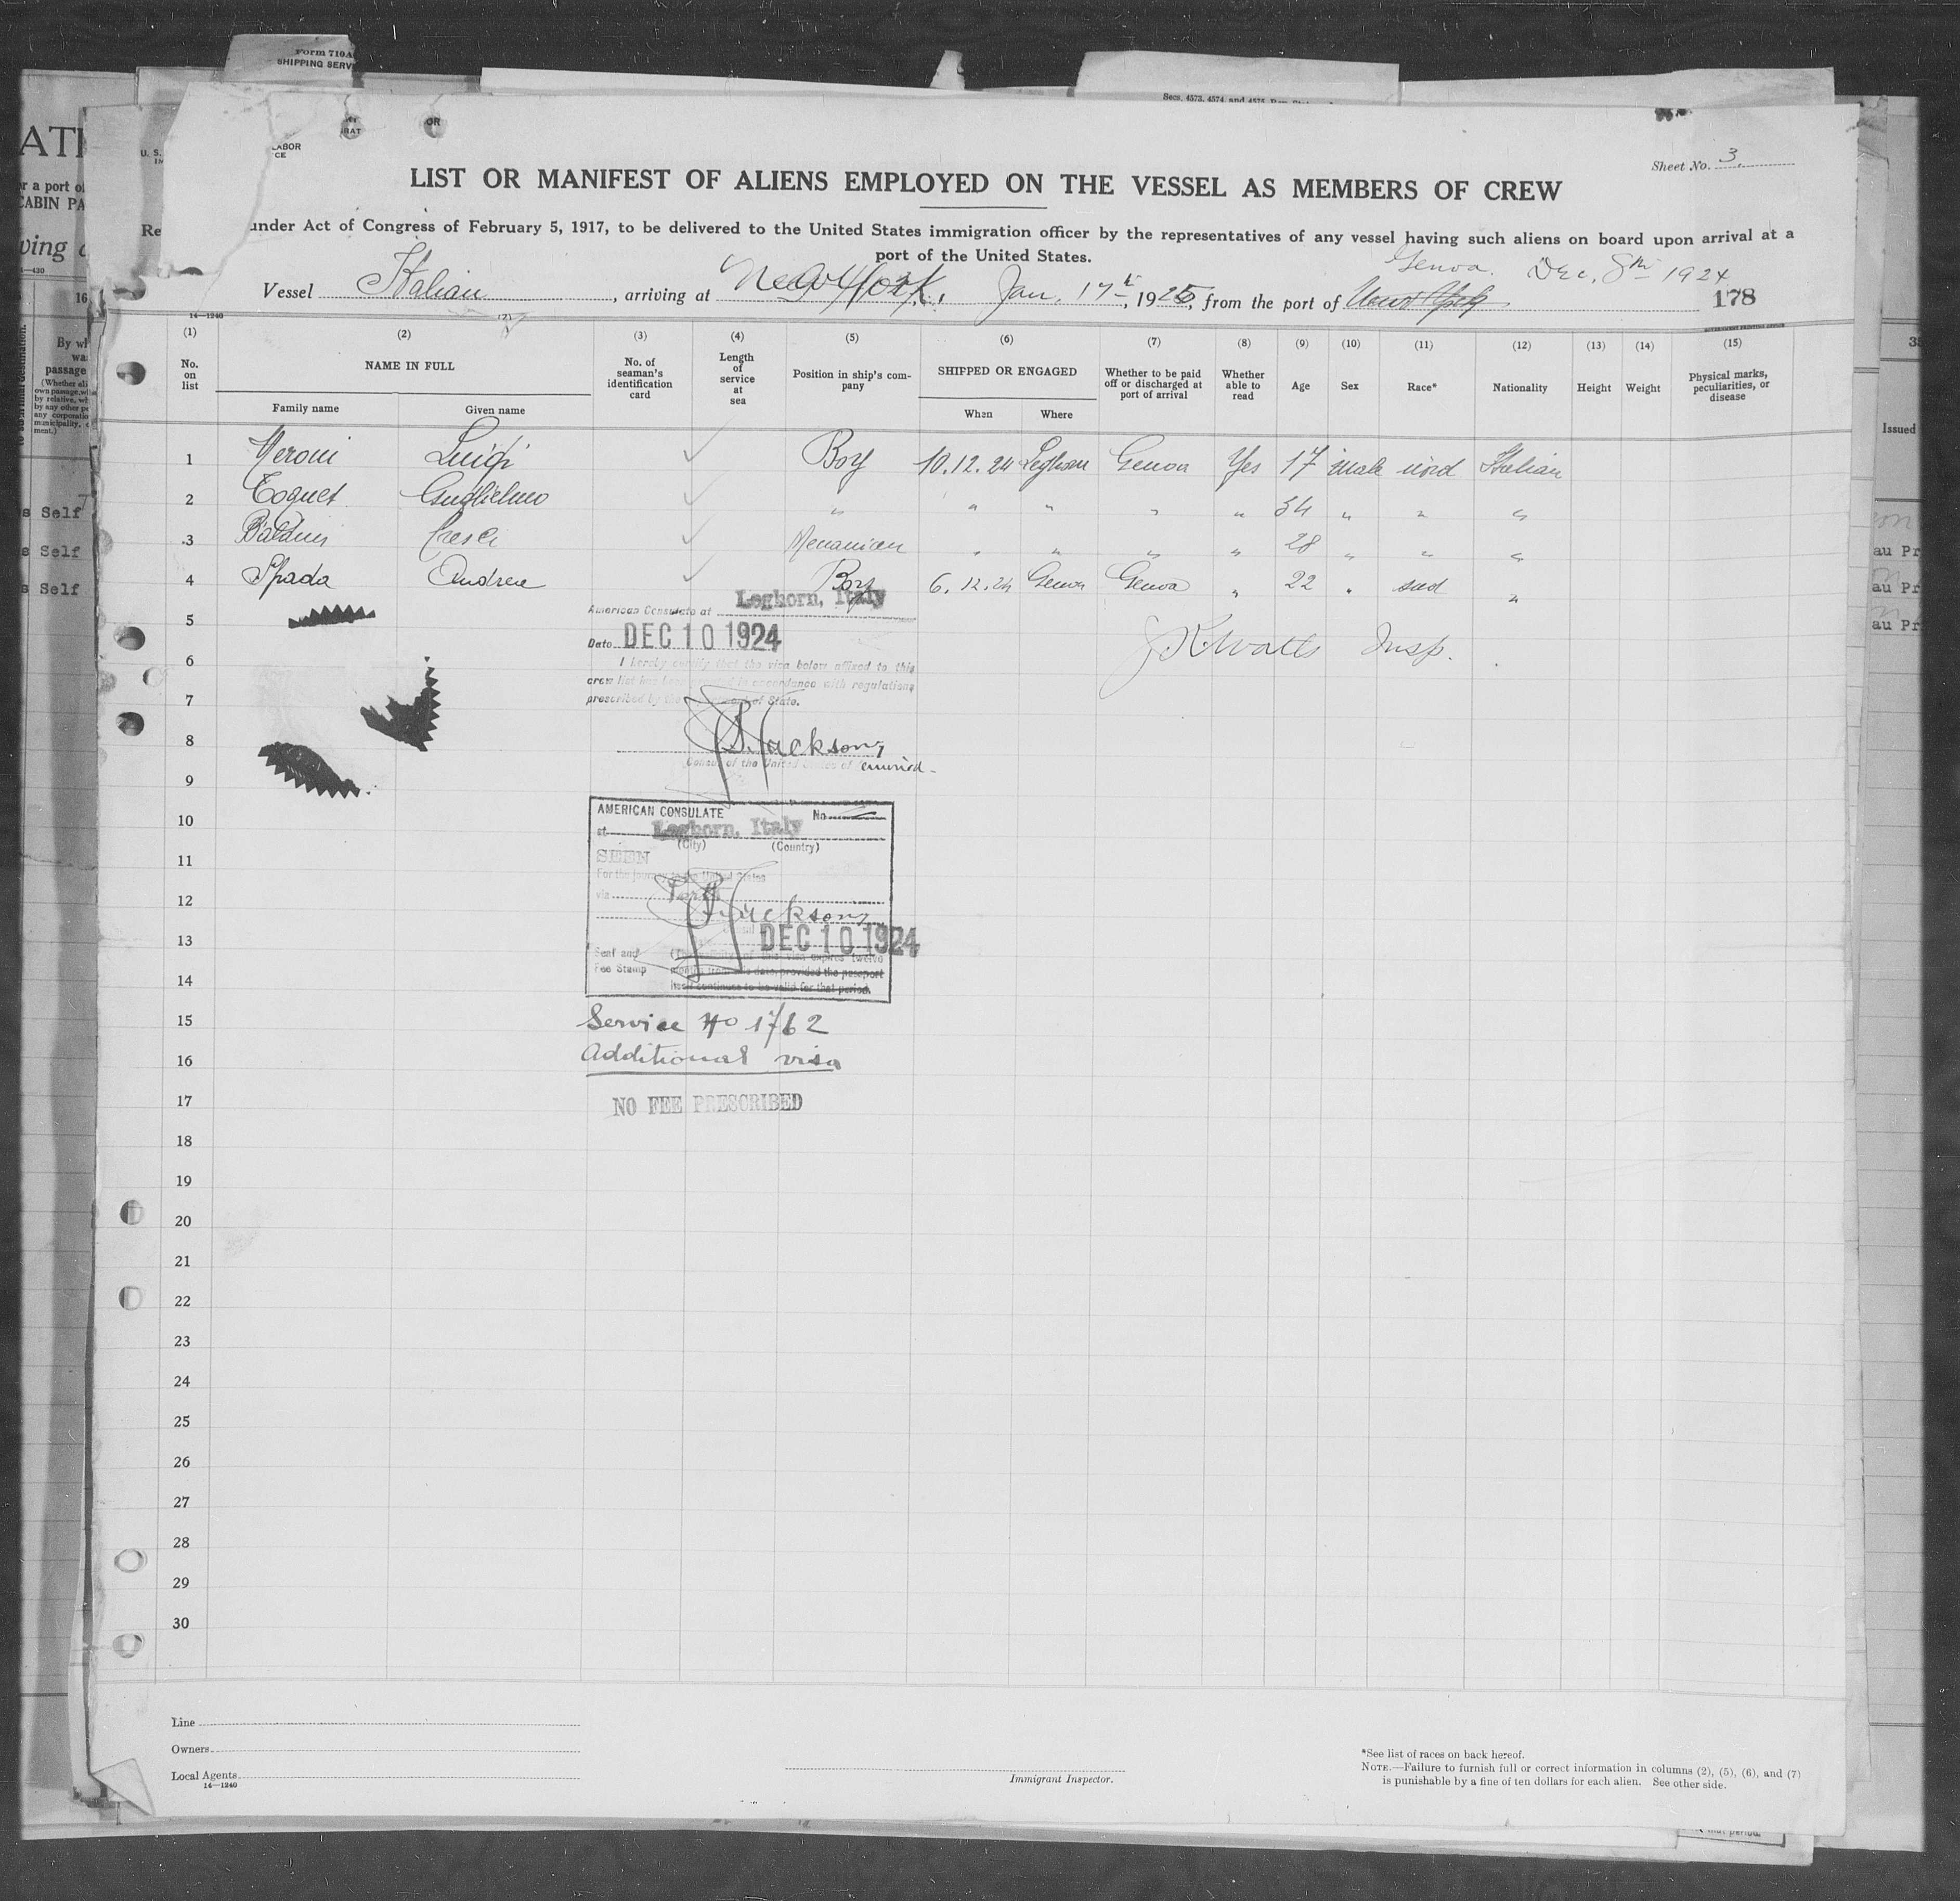 Form 710A
SHIPPING SERV
Secs. 4573, 4574, and 4575,
LABOR
CE
Sheet No. 3.
LIST OR MANIFEST OF ALIENS EMPLOYED ON THE VESSEL AS MEMBERS OF CREW
under Act of Congress of February 5, 1917, to be delivered to the United States immigration officer by the representatives of any vessel having such aliens on board upon arrival at a
port of the United States.
Genoa. Dec. 8th 1924
Vessel Italian, arriving at New York, Jan. 17th, 1925, from the port of New York
178
14—1240
(1) (2) (3) (4) (5) (6) (7) (8) (9) (10) (11) (12) (13) (14) (15)
No. on list
NAME IN FULL
Family name Given name
No. of seaman's identification card
Length of service at sea
Position in ship's company
SHIPPED OR ENGAGED
When Where
Whether to be paid off or discharged at port of arrival
Whether able to read
Age
Sex
Race*
Nationality
Height
Weight
Physical marks, peculiarities, or disease
1 Neroni Luigi ✓ Boy 10.12.24 Leghorn Genoa Yes 17 male nord Italian
2 Coquet Guglielmo ✓ " " " " " 34 " " "
3 ✓ " " " " 28 " " "
4 Spada Andrea ✓ Boy 6.12.24 Genoa Genoa " 22 " sud "
5
American Consulate at Leghorn, Italy
Date DEC 10 1924
J K Watts Insp.
6
I hereby certify that the visa below affixed to this
crew list has been in accordance with regulations
7
prescribed by the Department of State.
8
Jackson
Consul of the United States of America
9
10
AMERICAN CONSULATE No.
at Leghorn, Italy
(City) (Country)
11
SEEN
For the journey to the United States
12
via
Jackson
13
DEC 10 1924
Seal and
Fee Stamp
(The validity of this visa expires twelve
months from this date, provided the passport
14
itself continues to be valid for that period.
15
Service No 1762
16
Additional visa
17
NO FEE PRESCRIBED
18
19
20
21
22
23
24
25
26
27
28
29
30
Line
Owners
Local Agents
14—1240
Immigrant Inspector.
*See list of races on back hereof.
NOTE.—Failure to furnish full or correct information in columns (2), (5), (6), and (7)
is punishable by a fine of ten dollars for each alien. See other side.